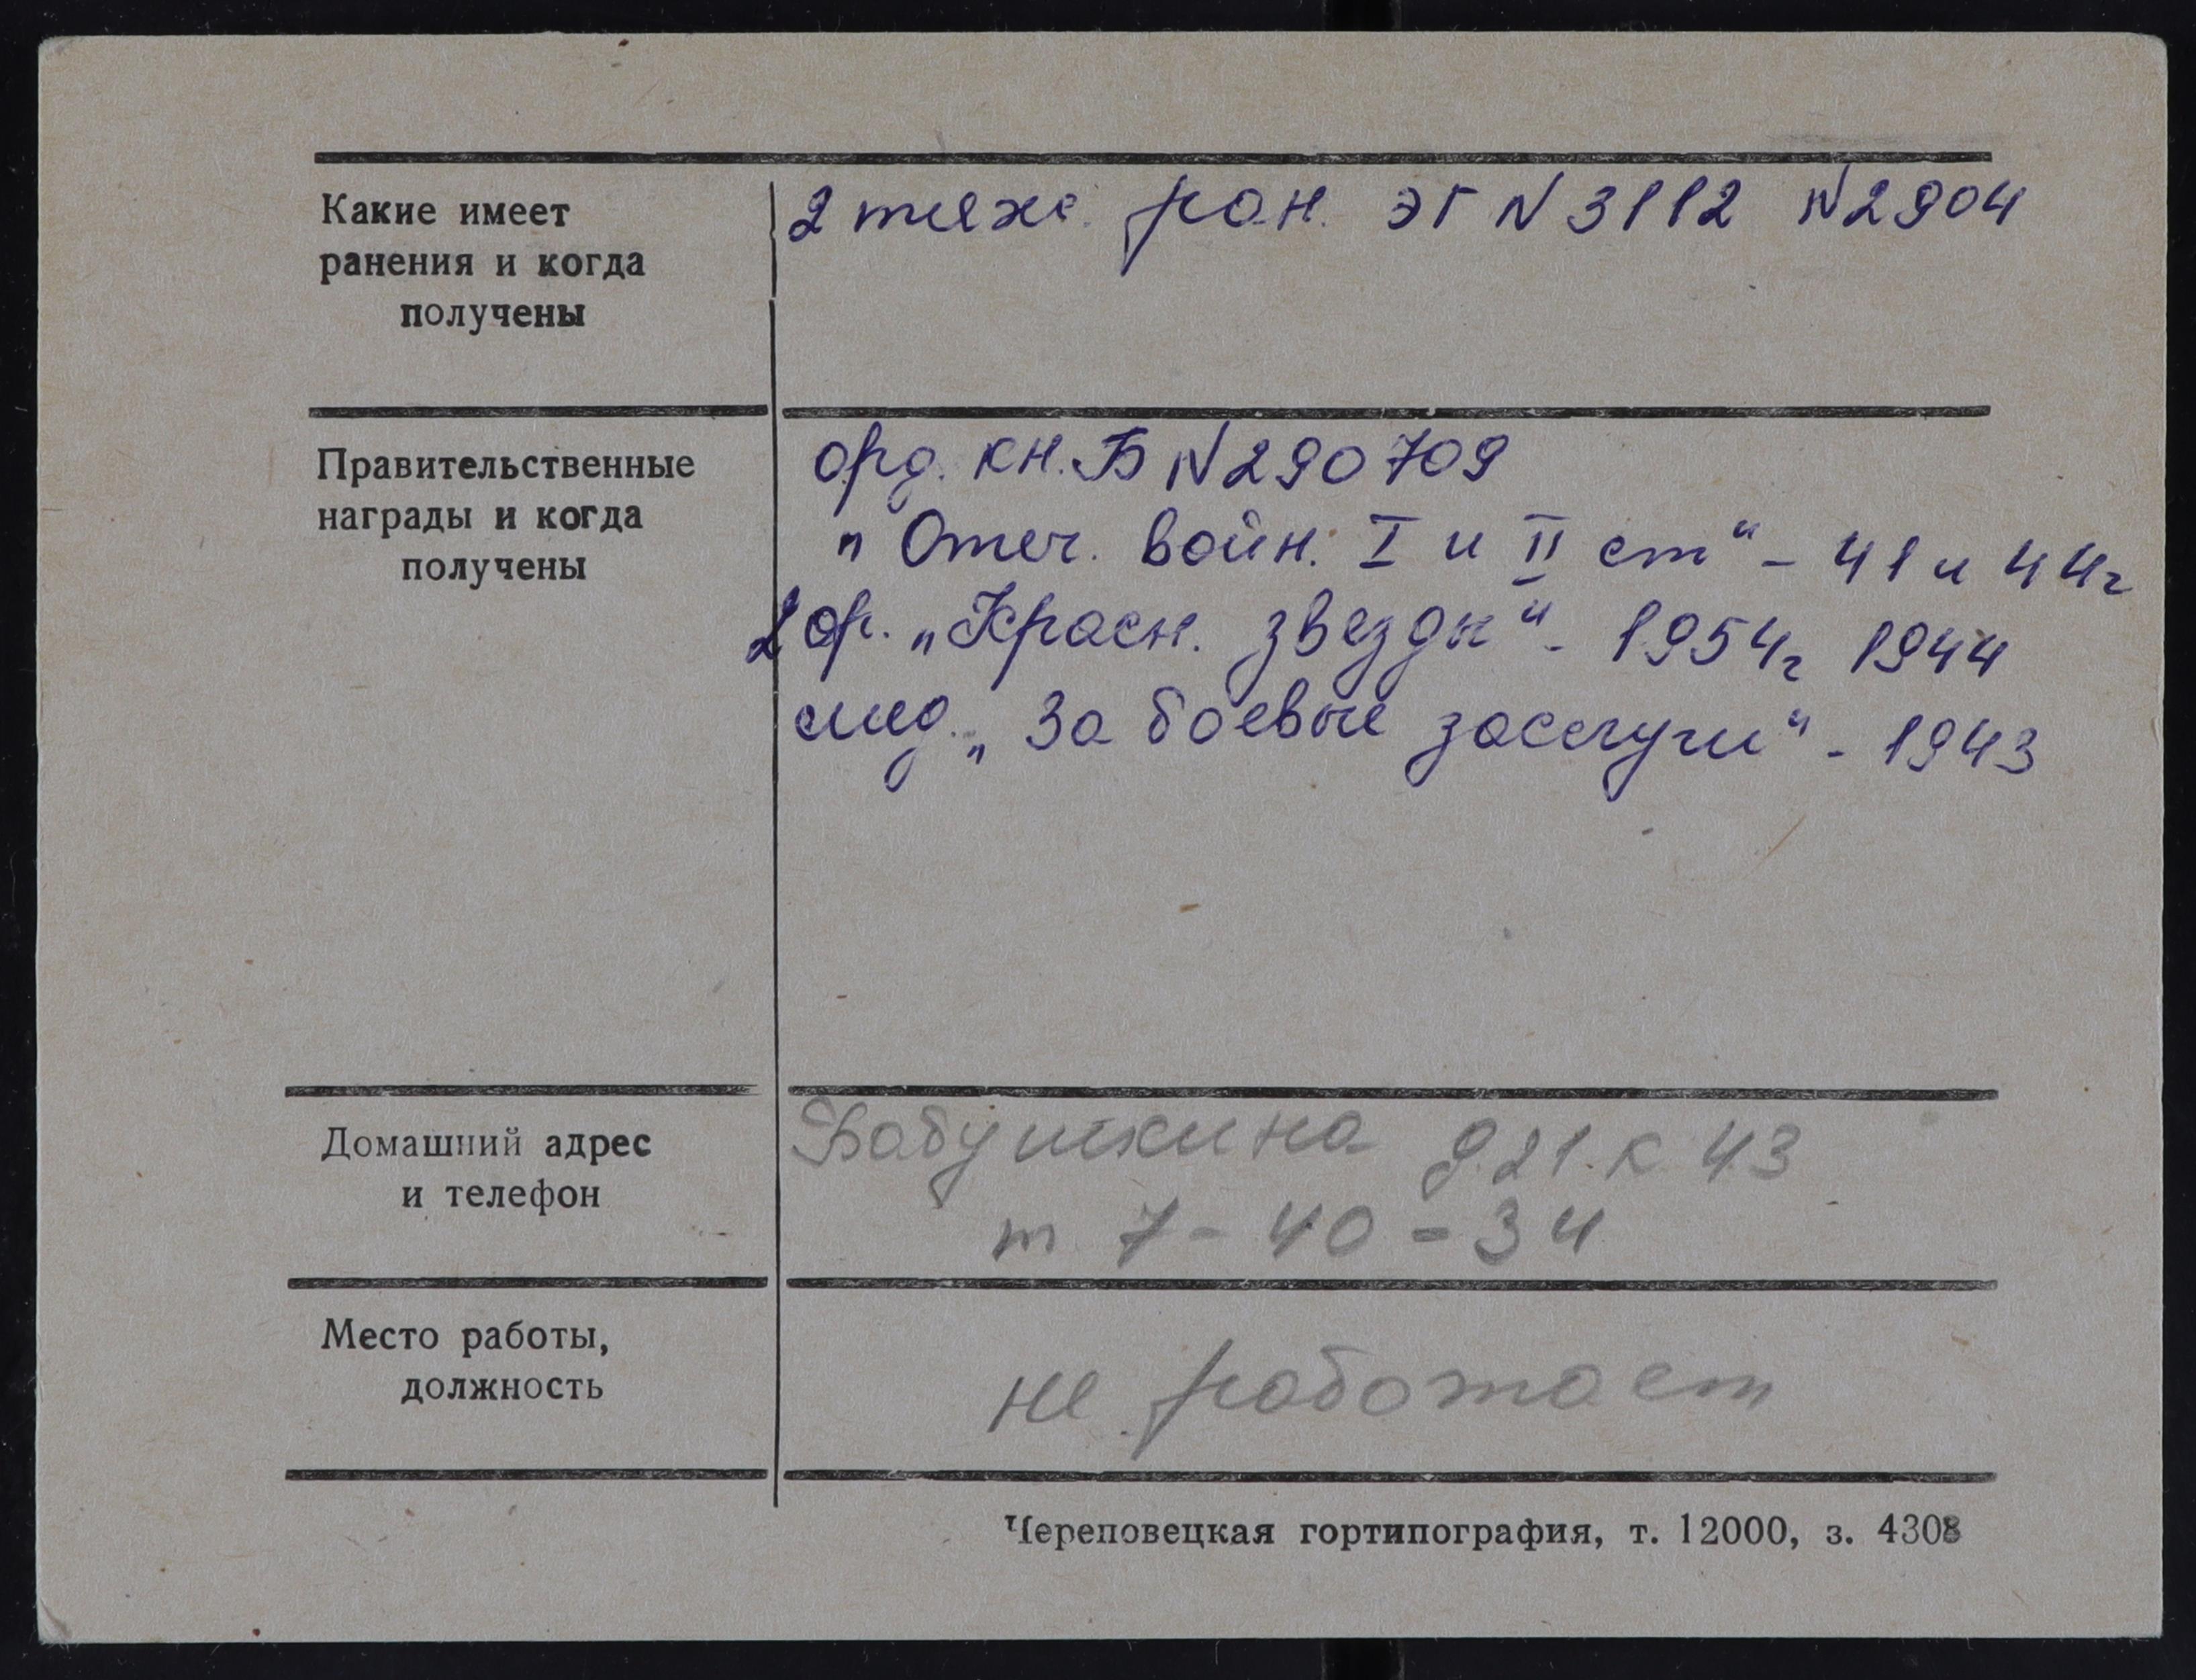 Какие имеет
ранения и когда
получены
2 тяж. ран. ЭГ N 3112 N2904
Правительственные
награды и когда
получены
орд. кн. Б N290709
„Отеч. войн. I и II ст“ - 41 и 44г
2 ор. „Красн. звезды“ - 1954г 1944
мед. „За боевые заслуги“ - 1943
Домашний адрес
и телефон
Бабушкина д.21. к 43
т 7-40-34
Место работы,
должность
не работает
Череповецкая гортипография, т. 12000, з. 4308